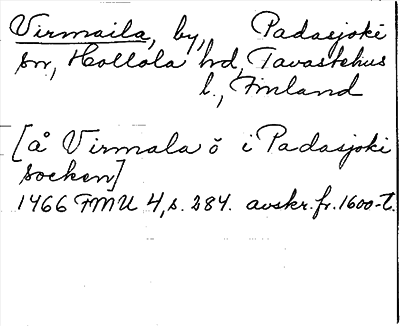 Virmaila, by, Padasjoki
sn, Hollola hd, Tavastehus
l., Finland
[å Virmala ö i Padasjoki
socken]
1466 FMU 4, s. 284. avskr. fr. 1600-t.